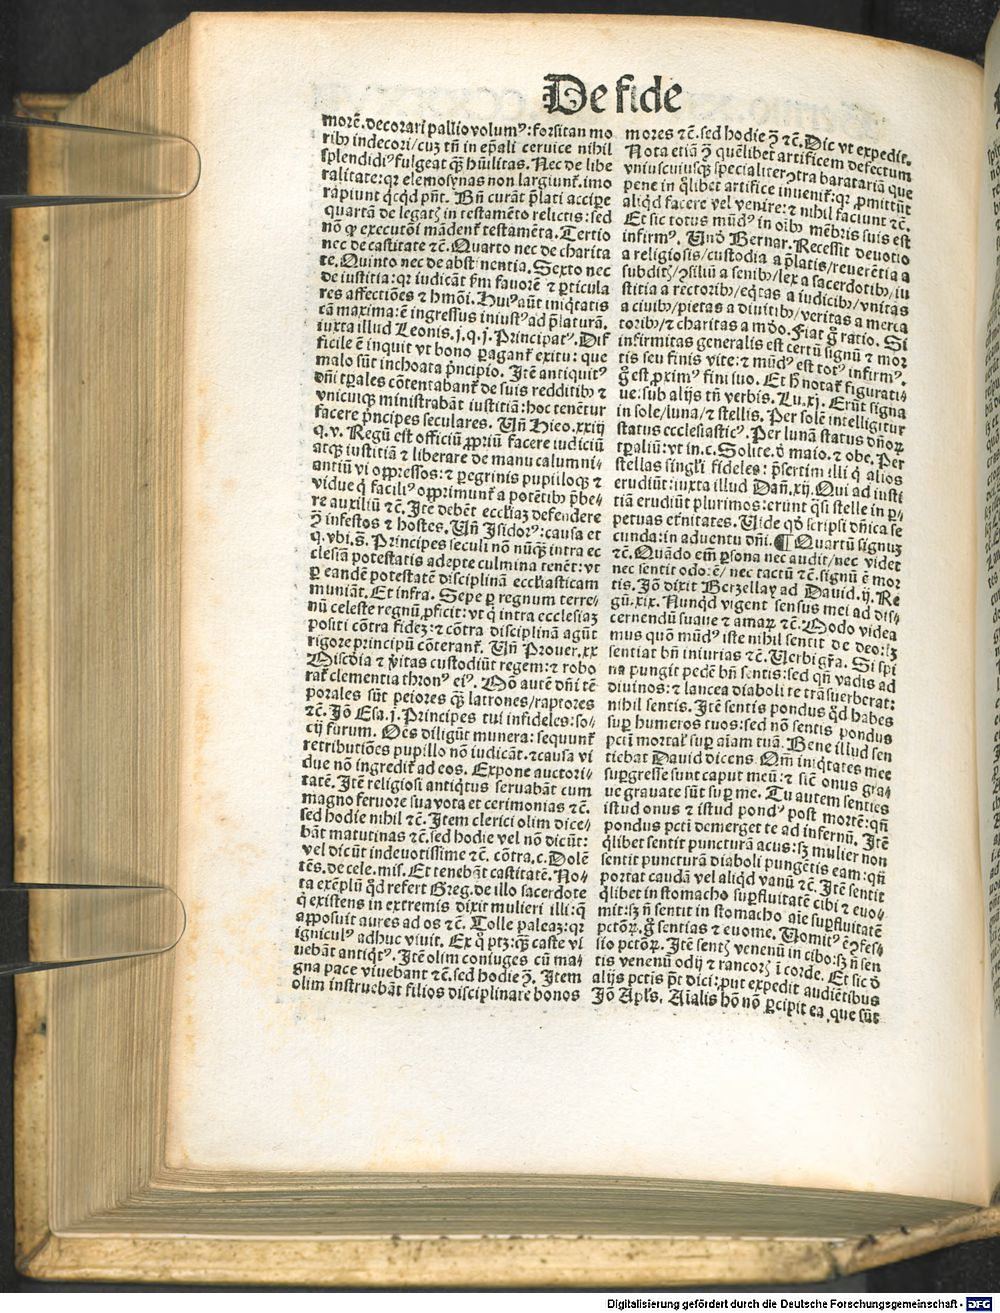 De fide
morē.decorari pallio volumꝰ:forsitan mo
ribꝰ indecori/cuꝫ tñ in ep̄ali ceruice nihil
splendidiꝰ fulgeat qꝫ hūilitas. Nec de libe
ralitate:qꝛ elemosynas non largiunt̄.imo
rapiunt qͥcqͥd pn̄t. Bn̄ curāt p̄lati accipe
quartā de legatꝭ in testamēto relictis:sed
nō ꝙ executōi mādent̄ testamēta.Tertio
nec de castitate ⁊c.Quarto nec de charita
te.Quinto nec de abstinentia.Sexto nec
de iustitia:qꝛ iudicāt ẜm fauorē ⁊ ꝑticula
res affectiōes ⁊ hmōi.Huiꝰ aūt iniqͥtatis
cā maxima:ē ingressus iniustꝰ ad p̄laturā.
iuxta illud Leonis.j.q.j.Principatꝰ.Dif
ficile ē inquit vt bono ꝑagant̄ exitu: que
malo sūt inchoata pͥncipio. Itē antiquitꝰ
dn̄i tꝑales cōtentabant̄ de suis redditibꝰ ⁊
vnicuiqꝫ ministrabāt iustitiā:hoc tenētur
facere pͥncipes seculares. Vn̄ Hiero.xxiij
q.v. Regū est officiū ꝓpriū facere iudiciū
atqꝫ iustitiā ⁊ liberare de manu calumni⸗
antiū vi oppressos:⁊ ꝑegrinis pupilloqꝫ ⁊
vidue qͥ faciliꝰ opprimunt̄ a potētibꝰ p̄be⸗
re auxiliū ⁊c.Itē debēt eccl̄iaꝫ defendere
ꝯ̄ infestos ⁊ hostes. Vn̄ Isidorꝰ:causa et
q.vbi.s̄. Principes seculi nō nūqꝫ intra ec
clesiam potestatis adepte culmina tenēt:vt
ꝑ eandē potestatē disciplinā ecclīasticam
muniāt.Et infra. Sepe ꝑ regnum terre⸗
nū celeste regnū ꝓficit:vt qͥ intra ecclesiaꝫ
positi cōtra fideꝫ:⁊ cōtra disciplinā agūt
rigore principū cōterant̄. Vn̄ Prouer.xx
Misc̄dia ⁊ vͥitas custodiūt regem:⁊ robo
rat̄ clementia thronꝰ eiꝰ. Mō autē dn̄i tē
porales sūt peiores qꝫ latrones/raptores
⁊c.Iō Esa.j.Principes tui infideles:so⸗
cij furum. Oēs diligūt munera:sequunt̄
retributiōes pupillo nō iudicāt.⁊causa vi
due nō ingredit̄ ad eos. Expone auctori⸗
tatē. Itē religiosi antiqͥtus seruabāt cum
magno feruore sua vota et cerimonias ⁊c.
sed hodie nihil ⁊c. Item clerici olim dice⸗
bāt matutinas ⁊c.sed hodie vel nō dicūt:
vel dicūt indeuotissime ⁊c. cōtra.c. Dolē
tēs.de cele.mis. Et tenebāt castitatē. No⸗
ta exēplū qd̄ refert Greg.de illo sacerdote
qͥ existens in extremis dixit mulieri illi:q̄
apposuit aures ad os ⁊c. Tolle paleaꝫ:qꝛ
igniculꝰ adhuc viuit. Ex qͦ ptꝫ:qꝫ caste vi
uebāt antiqͥtꝰ. Itē olim coniuges cū ma⸗
gna pace viuebant ⁊c.sed hodie ꝯ̄. Item
olim instruebāt filios disciplinare bonos
mores ⁊c.sed hodie ꝯ̄ ⁊c.Dic vt expedit.
Nota etiā ꝯ̄ quēlibet artificem defectum
vniuscuiusqꝫ specialiter ꝯtra baratariā que
pene in qͦlibet artifice inuenit̄:qꝛ ꝓmittūt
aliqͥd facere vel venire:⁊ nihil faciunt ⁊c.
Et sic totus mūdꝰ in oībꝰ mēbris suis est
infirmꝰ. Vnd̄ Bernar.Recessit deuotio
a religiosis/custodia a p̄latis/reuerētia a
subditꝭ/ꝯsiliū a senibꝰ/lex a sacerdotibꝰ/iu
stitia a rectoribꝰ/eqͥtas a iudicibꝰ/vnitas
a ciuibꝰ/pietas a diuitibꝰ/veritas a merca
toribꝰ/⁊ charitas a mūdo.Fiat ḡ ratio. Si
infirmitas generalis est certū signū ⁊ mor
tis seu finis vite:⁊ mūdꝰ est totꝰ infirmꝰ.
ḡ est ꝓximꝰ fini suo. Et h̄ notat̄ figurati⸗
ue:sub alijs tn̄ verbis. Lu.xj. Erūt signa
in sole/luna/⁊ stellis. Per solē intelligitur
status ecclesiasticꝰ. Per lunā status dn̄oꝝ
tꝑaliū:vt in.c.Solite.d̄ maio.⁊ obe. Per
stellas singl̄i fideles: p̄sertim illi qͥ alios
erudiūt:iuxta illud Dan̄.xij.Qui ad iusti
tiā erudiūt plurimos:erunt qͣsi stelle in ꝑ⸗
petuas et̄nitates. Vide qd̄ scripsi dn̄ica se
cunda:in aduentu dn̄i. ¶ Quartū signuꝫ
⁊c.Quādo em̄ ꝑsona nec audit/nec videt
nec sentit odorē/ nec tactū ⁊c.signū ē mor
tis. Iō dixit Berzellay ad Dauid.ij.Re
gū.xix. Nunqͥd vigent sensus mei ad dis⸗
cernendū suaue ⁊ amaꝝ ⁊c. Modo videa
mus quō mūdꝰ iste nihil sentit de deo:sꝫ
sentiat bn̄ iniurias ⁊c. Verbi gr̄a. Si spi
na pungit pedē bn̄ sentis:sed qn̄ vadis ad
diuinos:⁊ lancea diaboli te trāsuerberat:
nihil sentis. Itē sentis pondus qd̄ habes
suꝑ humeros tuos:sed nō sentis pondus
pctī mortal̄ suꝑ aīam tuā. Bene illud sen
tiebat Dauid dicens. Qm̄ iniqͥtates mee
suꝑgresse sunt caput meū:⁊ sicū onus gra⸗
ue grauate sūt suꝑ me. Tu autem senties
istud onus ⁊ istud pondꝰ post mortē:qn̄
pondus pctī demerget te ad infernū. Itē
qͥlibet sentit puncturā acus:sꝫ mulier non
sentit puncturā diaboli pungētis eam:qn̄
portat caudā vel aliqd̄ vanū ⁊c. Itē sentit
qͥlibet in stomacho suꝑfluitatē cibi ⁊ euo⸗
mit:sꝫ n̄ sentit in stomacho aīe suꝑfluitatē
pctōꝝ.ḡ sentias ⁊ euome. Vomitꝰ ē ꝯfes⸗
sio pctōꝝ. Itē sentꝭ venenū in cibo:sꝫ n̄ sen
tis venenū odij ⁊ rancorꝭ ī corde. Et sic d̄
alijs pctis pt̄ dici:put expedit audiētibus
Iō Apl̄s. Aīalis hō nō ꝑcipit ea, que sūt
Digitalisierung gefördert durch die Deutsche Forschungsgemeinschaft - DFG